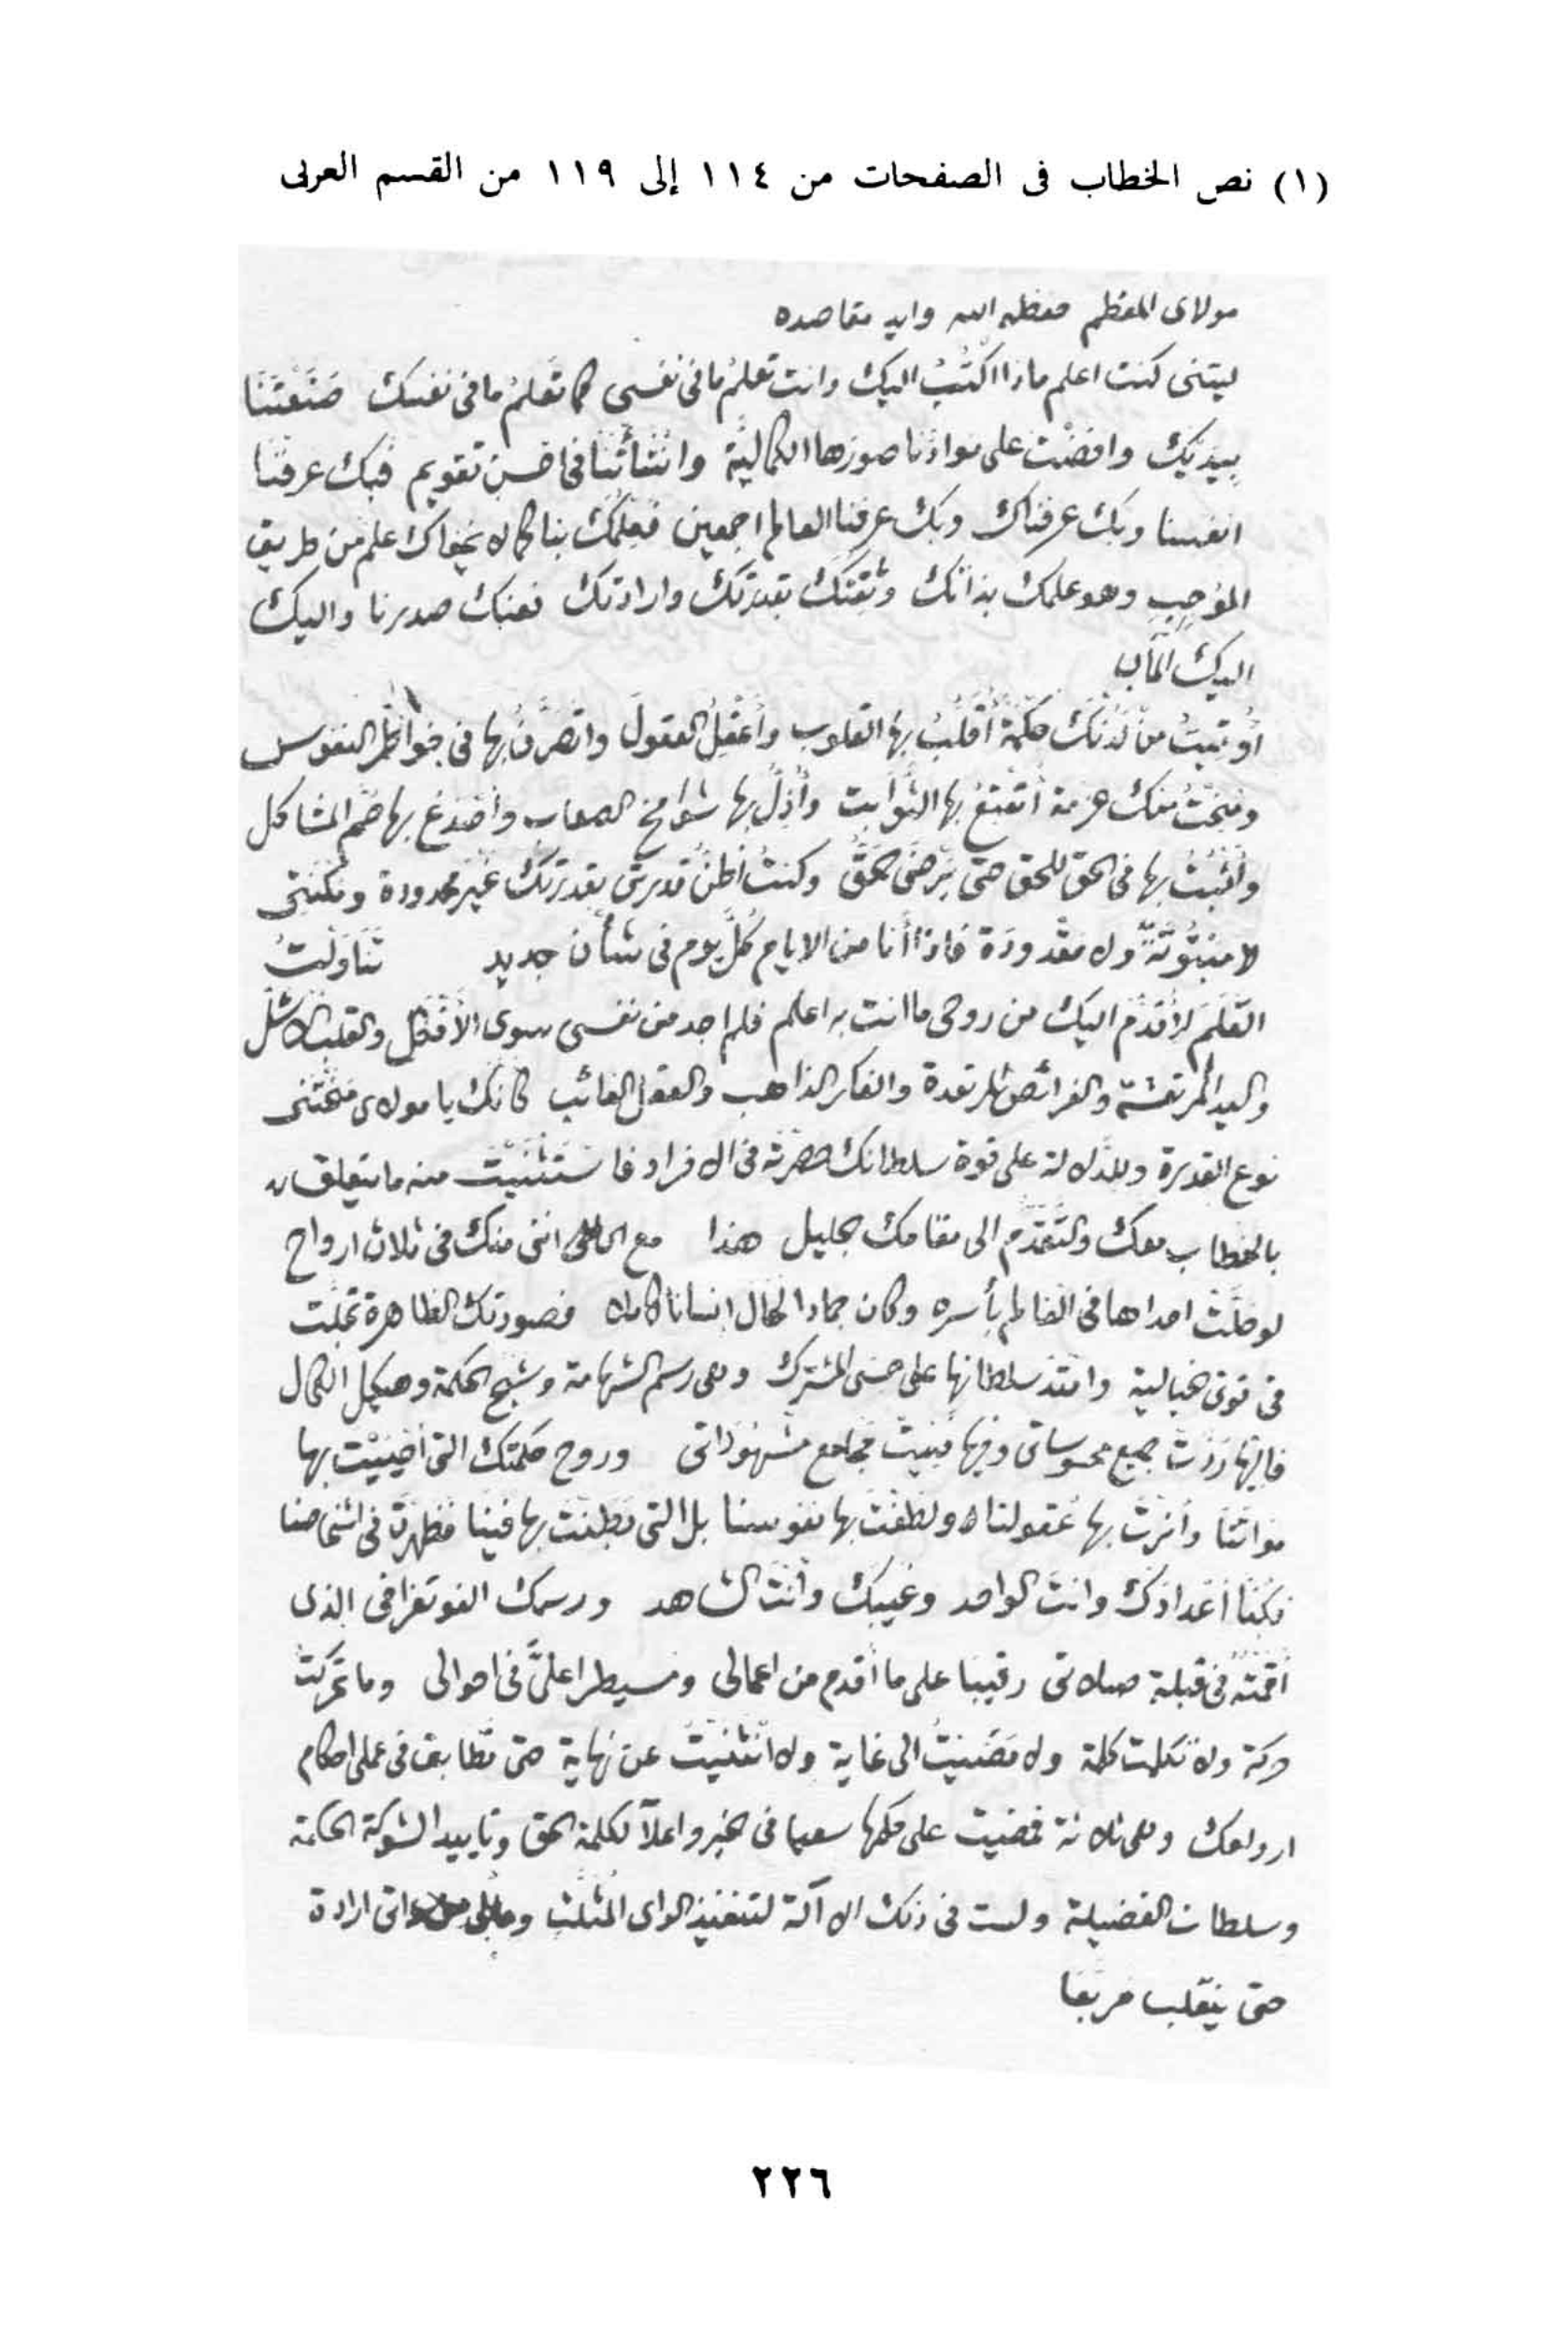 (١) نص الخطاب فى الصفحات من ١١٤ إلى ١١٩ من القسم العربى
مولاى المعظم حفظه الله وايد مقاصده
ليتنى كنت اعلم ماذا اكتُبُ اليك وانت تعلمُ ما فى نفسى كما تَعْلمُ ما فى نفسك صَنَعْتَنَا
بِيَدَيْك وافَضْتَ على موادّنا صورَها الكماليّة وانْشَأتَنا فى احسن تقويم فبك عرفنا
انفسنا وبك عرفناك وبك عرفنا العالم اجمعين فعِلمُك بنا كما لا يخفاك علمٌ من طريق
الموجب وهو علمك بذاتك وثِقَتُك بقدرتك وارادتك فعنك صدرنا واليك
اليك المآب
أُوتيتُ من لَدُنْك حكمةً أُقَلِّبُ بها القلوب وأَعْقِلُ العقولَ واتَصَرّفُ بها فى خواطر النفوس
ومُنِحْتُ منك عزمة أُتَعْتِعُ بها الثوابت وأُذِلّ بها شوامخ الصعاب وأصْدَعُ بها صُمّ المشاكل
وأَثْبُتُ بها فى الحق للحق حتى يَرْضَى الحَقُّ وكنتُ أَظُنّ قدرتى بقدرتك غَيْرَ محدودة ومُكْنَتى
لا مَبْتُوتَةً ولا مقدودَة فاذا أنا من الايام كُلَّ يوم فى شأن جديد تَنَاوَلْتُ
القَلَمَ لأُقدّم اليك من روحى ما انت به اعلم فلم اجد من نفسى سوى الأفْكَل والقلب الاشلّ
واليد المرتعشة والفرائص المرتعدة والفكر الذاهب والعقل الغائب كأنك يا مولاى مَنَحْتَنى
نوع القدرة وللدّلالة على قوة سلطانك حصرته فى الافراد فاستثنيت منه ما يتعلق
بالخطاب معك والتّقدّم الى مقامك الجليل هذا مع اننى منك فى ثلاث ارواح
لو حَلّتْ احداها فى العالم بأسره وكان جمادا لحال انسانا كاملا فصورتك الظاهرة تجلّت
فى قوتى الخيالية وامتدّ سلطانها على حسى المشترك وهى رسم الشهامة وشبح الحكمة وهيكل الكمال
فاليها رُدّتْ جميع محسوساتى وفيها فنيتْ مجامع مشهوداتى وروح حكمتك التى أحْيَيْت بها
مواتنا وأنَرْتَ بها عقولنا ولطّفْت بها نفوسنا بل التى بَطَنْتَ بها فينا فظهرتَ فى اشخاصنا
فكُنّا أعدادَك وانت الواحد وغيبَك وأنت الشاهد ورسمك الفوتغرافى الذى
أقمتُه فى قبلة صلاتى رقيبا على ما أُقدم من اعمالى ومسيطرا علىّ فى احوالى وما تحركت
حركة ولا تكلمت كلمة ولا مَضَيْتُ الى غاية ولا انْثَنَيْتُ عن نهاية حتى تطابق فى عملى احكام
ارواحك وهى ثلاثة فمضيت على حكمها سعيا فى الخير واعلآ لكلمة الحق وتاييدا لشوكة الحكمة
وسلطان الفضيلة ولست فى ذلك الا آلة لتنفيذ الراى المُثَلّث ارادة
حتى ينقلب مربعا
٢٢٦